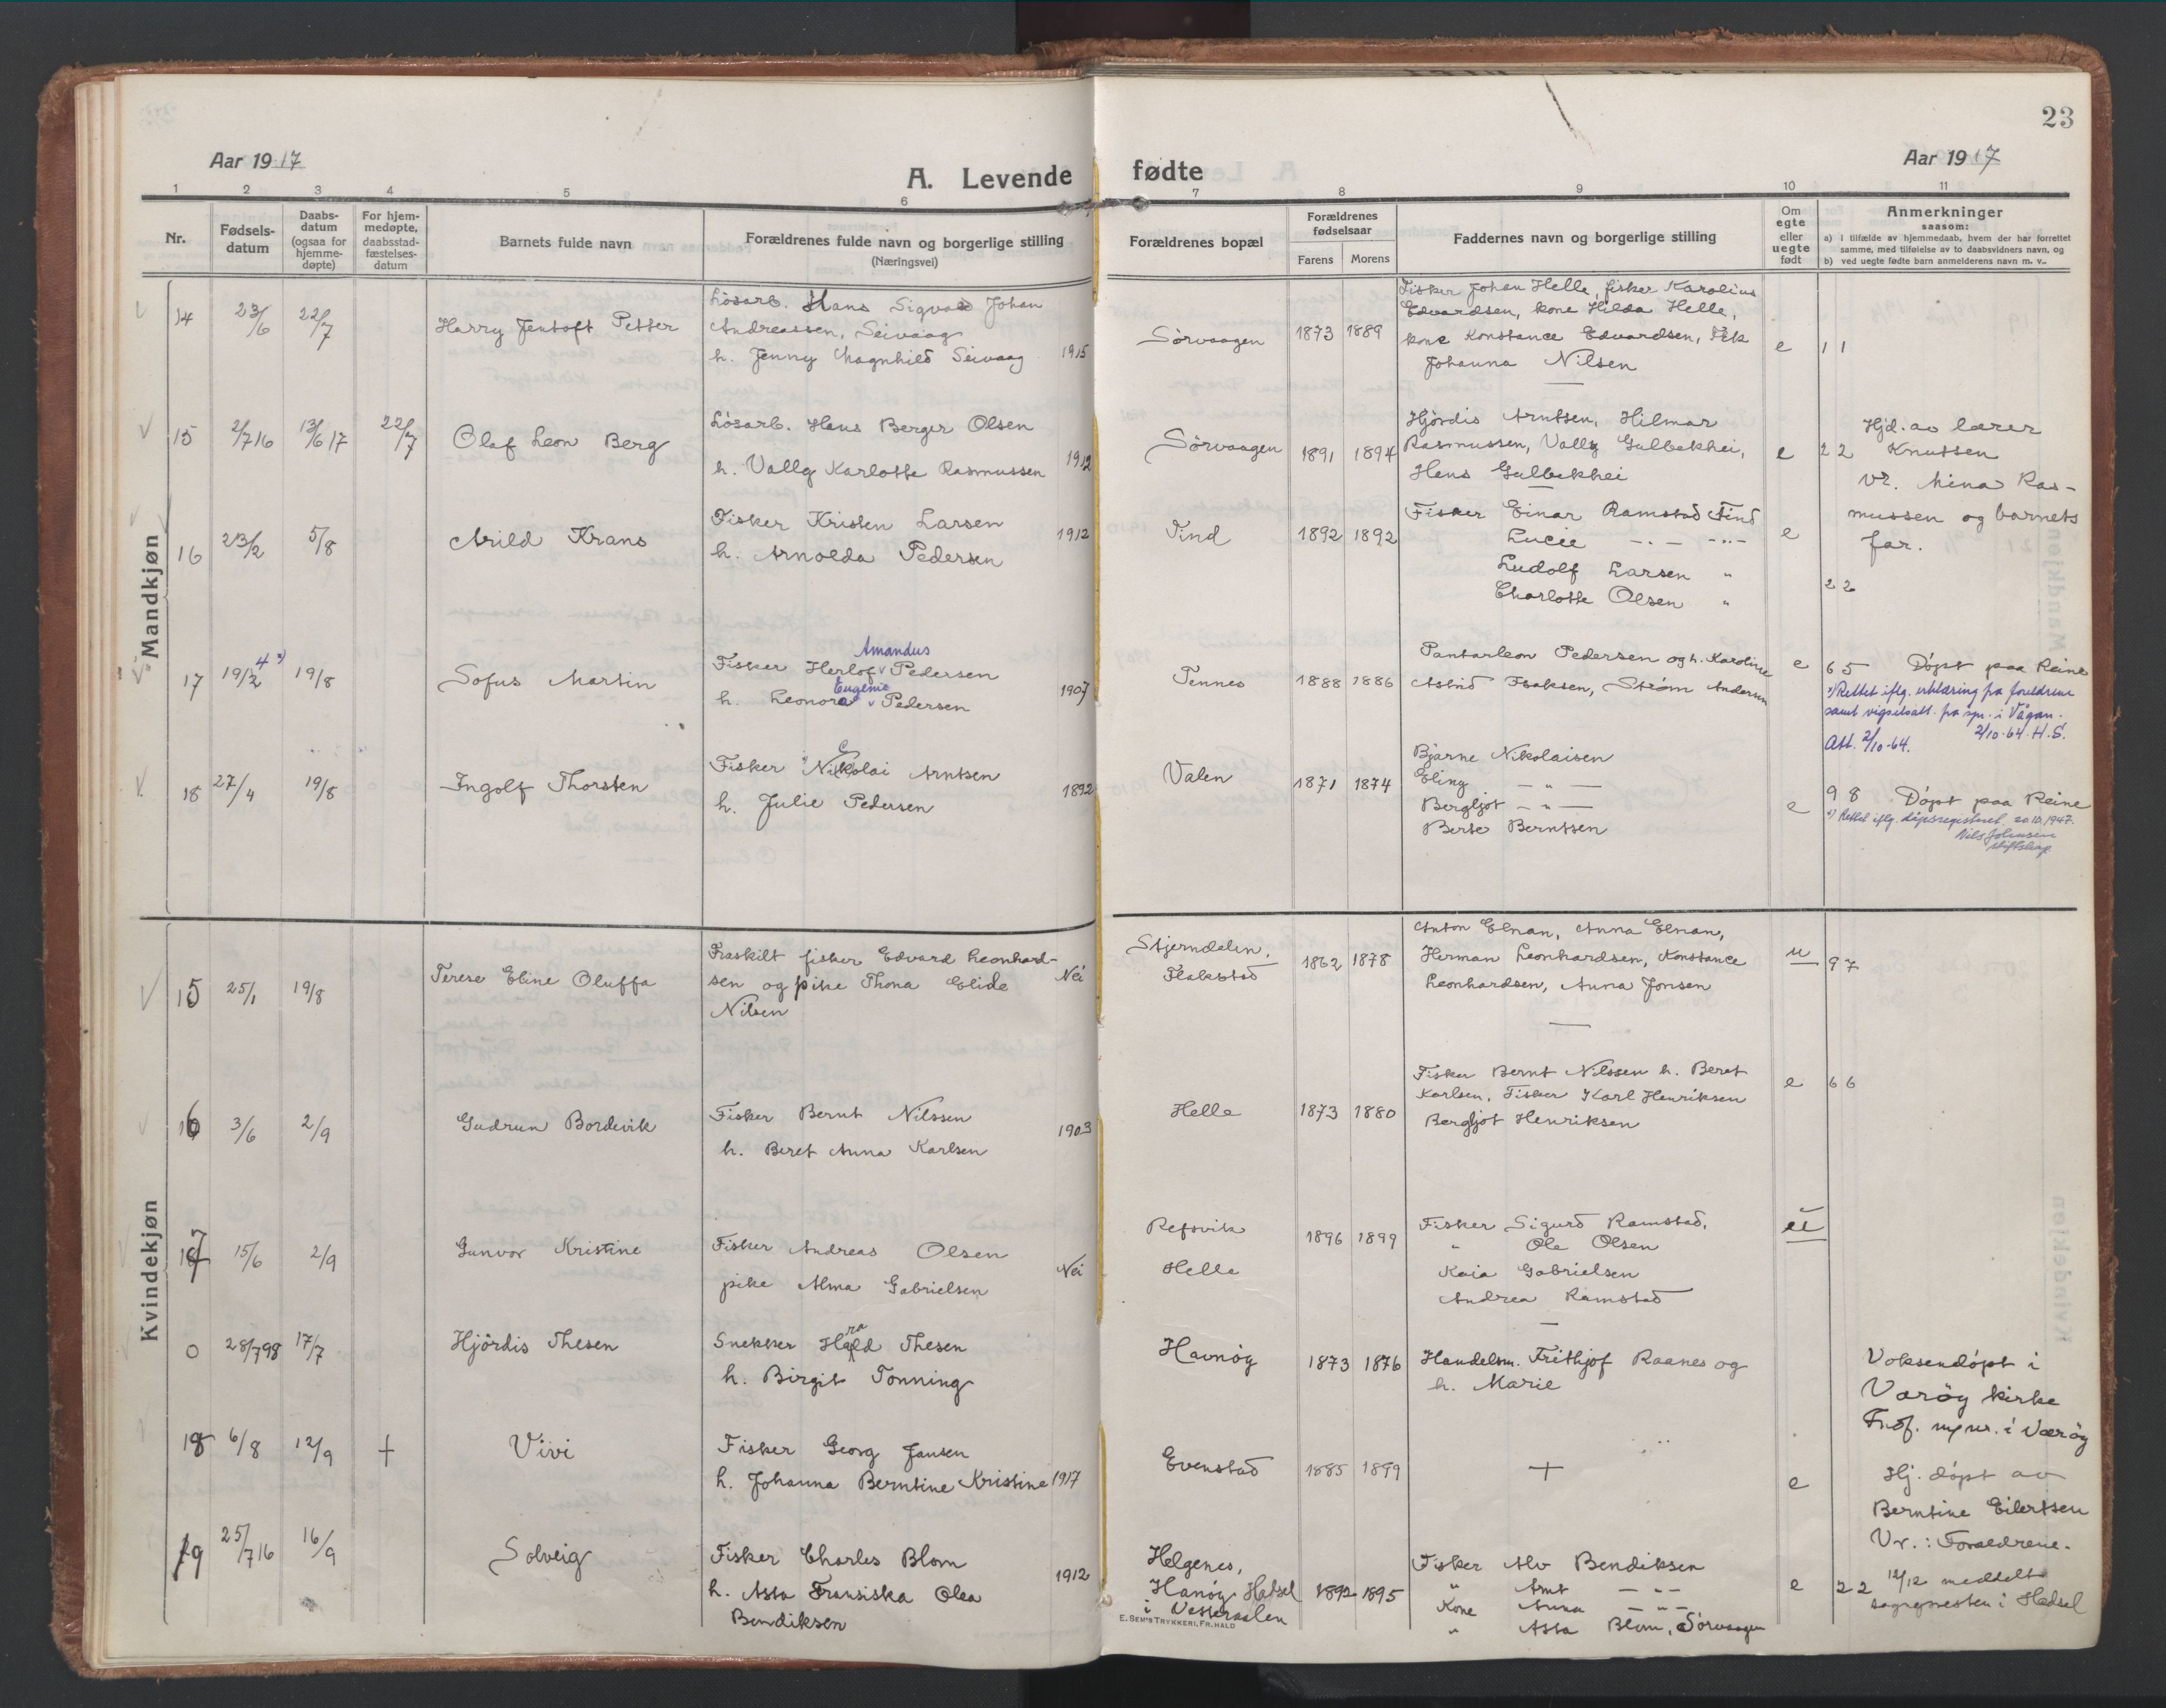 23
Aar 1917
A. Levende
fødte
Aar 1917
1 2 3 4 5 6 7 8 9 10 11
Nr.
Fødsels-
datum
Daabs-
datum
(ogsaa for
hjemme-
døpte)
For hjem-
medøpte,
daabsstad-
fæstelses-
datum
Barnets fulde navn
Forældrenes fulde navn og borgerlige stilling
(Næringsvei)
Forældrenes bopæl
Forældrenes
fødselsaar
Farens Morens
Faddernes navn og borgerlige stilling
Om
egte
eller
uegte
født
Anmerkninger
saasom:
a) I tilfælde av hjemmedaab, hvem der har forrettet
samme, med tilføielse av to daabsvidners navn, og
b) ved uegte fødte barn anmelderens navn m. v..
Mandkjøn
14 23/6 22/7
Harry Jentoft Petter
Løsarb. Hans Sigvard Johan
Andreassen, Seivaag
h. Jenny Magnhild Seivaag 1915
Sørvaagen 1873 1889
Fisker Johan Helle, fisker Karolius
Edvardsen, kone Hilda Helle,
kone Konstance Edvardsen, Pik
Johanna Nilsen
e 1 1
15 2/7 16 13/6 17 22/7
Olaf Leon Berg
Løsarb. Hans Berger Olsen
h. Vally Karlotte Rasmussen 1912
Sørvaagen 1891 1894
Hjørdis Arntsen, Hilmar
Rasmussen, Vally Gulbekhei,
Hans Gulbekhei
e 2 2
Hjd. av lærer
Knutsen
Vr. Mina Ras-
mussen og barnets
far.
16 23/2 5/8
Arild Krans
Fisker Kristen Larsen 1912
h. Arnolda Pedersen
Tind 1892 1892
Fisker Einar Ramstad Tind
Lucie -"- -"-
Ludolf Larsen "
Charlotte Olsen "
e
2 2
17 19/2 4 x) 19/8
Sofus Martin
Amandus
Fisker Herlof v Pedersen
Eugenie
h. Leonora v Pedersen 1907
Tennes 1888 1886
Pantarleon Pedersen og h. Karoline
Astrid Isaksen, Strøm Andersen
e 6 5 Døpt paa Reine
x) Rettet iflg. erklæring fra foreldrene
samt vigselsatt. fra spr. i Vågan.
2/10-64. H.S.
Att. 2/10-64.
18 27/4 19/8
Ingolf Thorsten
Fisker Nikolai Arntsen
c
h. Julie Pedersen 1892
Valen 1871 1874
Bjarne Nikolaisen
Eling -"-
Bergljot -"-
Berte Berntsen
e 9 8 Døpt paa Reine
x) Rettet iflg. dåpsregisteret 20.10.1947.
Nils Johnsen
stiftskap.
Kvindekjøn
15 25/1 19/8
Terese Eline Oluffa
Fraskilt fisker Edvard Leonhard-
sen og pike Thona Elide Nei
Nilsen
Stjerndalen,
Flakstad
1862 1878
Anton Elnan, Anna Elnan,
Herman Leonhardsen, Konstance
Leonhardsen, Anna Jonsen
u 9 7
16 3/6 2/9
Gudrun Bordevik
Fisker Bernt Nilssen
h. Beret Anna Karlsen 1903
Helle 1873 1880
Fisker Bernt Nilssen h. Beret
Karlsen, Fisker Karl Henriksen
Bergljot Henriksen
e 6 6
17 15/6 2/9
Gunvor Kristine
Fisker Andreas Olsen
pike Alma Gabrielsen Nei
Refsvik
Helle
1896 1899
Fisker Sigurd Ramstad,
" Ole Olsen
Kaia Gabrielsen
Andrea Ramstad
u
0 28/7 98 17/7
Hjørdis Thesen
Snekker Harald Thesen
h. Birgit Tonning
Havnøy 1873 1876
Handelsm. Frithjof Raanes og
h. Marie
Voksendøpt i
Værøy kirke
18 6/8 12/9 +
Vivi
Fisker Georg Jansen
h. Johanna Berntine Kristine 1917
Evenstad 1885 1899
+
e
Hj. døpt av
Berntine Eilertsen
Vr.: Forældrene.
19 25/7 16 16/9
Solveig
Fisker Charles Blom 1912
h. Asta Fransiska Olea
Bendiksen
Helgenes,
Hanøy, Hadsel
i Vesteraalen
1892 1895
Fisker Alv Bendiksen
" Arnt -"-
Kone Anna -"-
" Asta Blom, Sørvaagen
e 2 2 12/12 meddelt
sognepresten i Hadsel
E. SEM'S TRYKKERI, FR.HALD